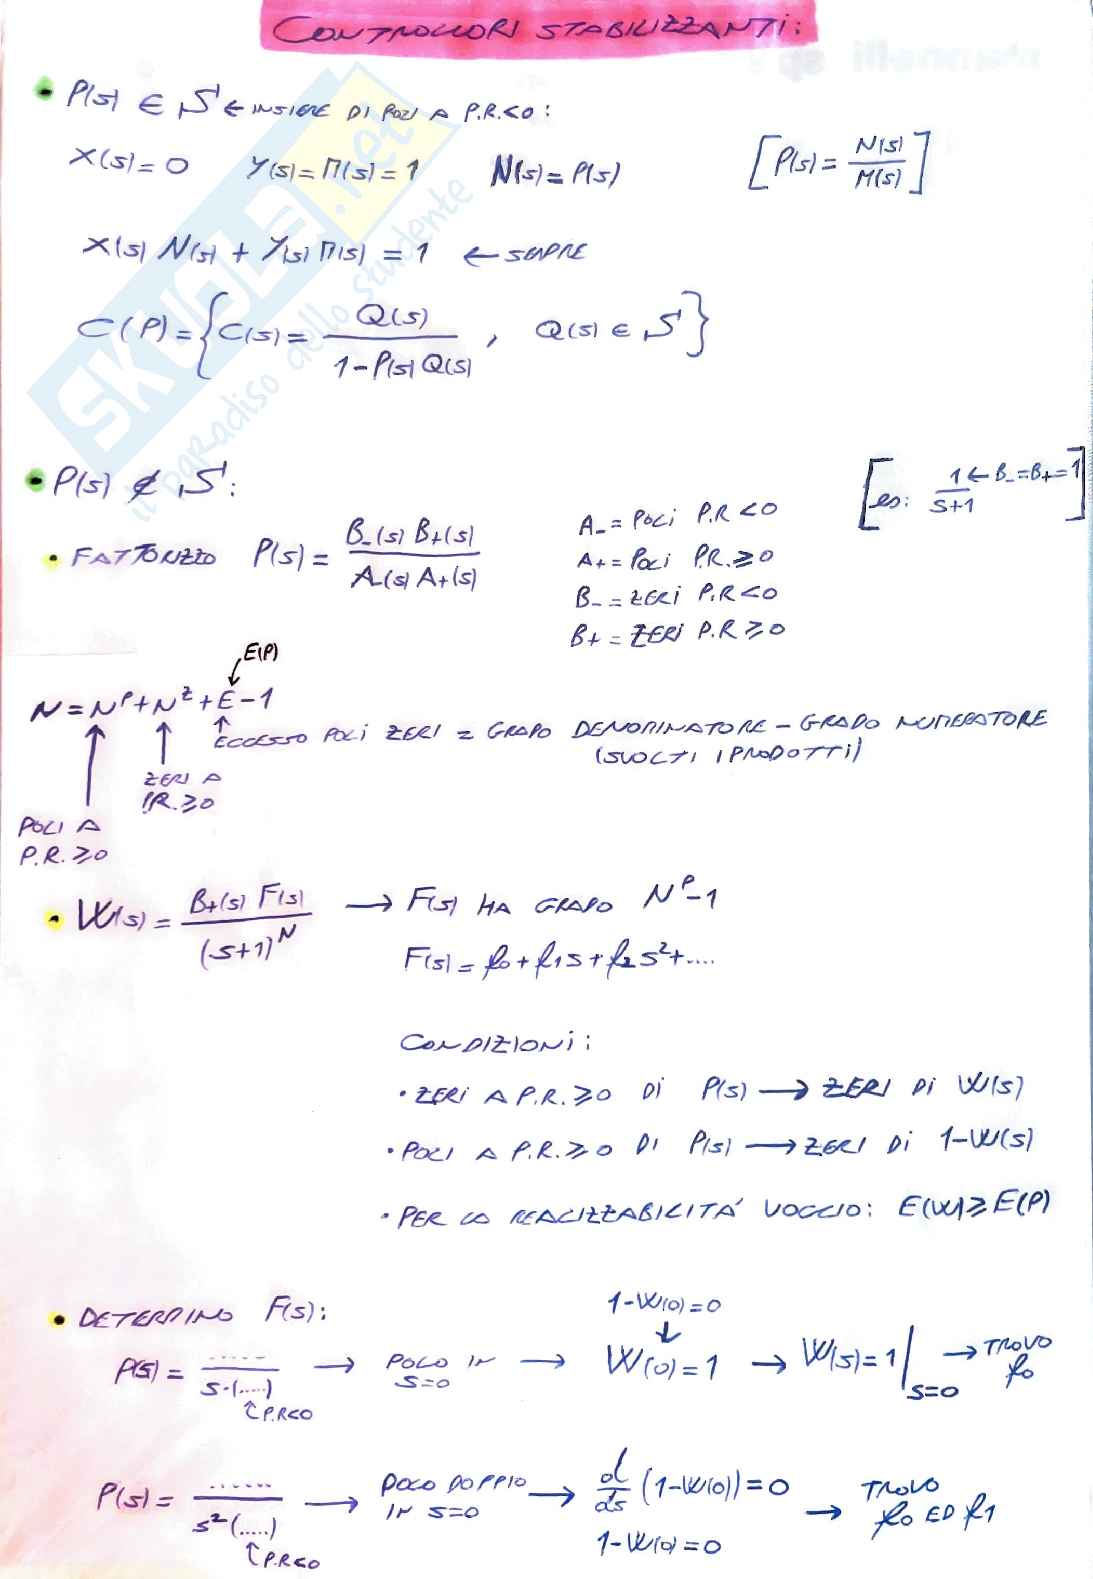 CONTROLLORI STABILIZZANTI:
• P(s) ∈ S ← INSIEME DI POLI A P.R.<0:
X(s)=0 Y(s)=M(s)=1 N(s)=P(s) [P(s)=N(s)/M(s)]
X(s)N(s)+Y(s)M(s)=1 ← SEMPRE
C(P)={C(s)=Q(s)/(1-P(s)Q(s)), Q(s)∈S}
• P(s)∉S:
[es: 1/(s+1) ← B-=B+=1]
• FATTORIZZO P(s)=B-(s)B+(s)/A-(s)A+(s)
A-=POLI P.R<0
A+=POLI P.R.≥0
B-=ZERI P.R<0
B+=ZERI P.R≥0
E(P)
N=N^P+N^Z+E-1
ECCESSO POLI ZERI = GRADO DENOMINATORE - GRADO NUMERATORE
(SVOLTI I PRODOTTI)
ZERI A
P.R.≥0
POLI A
P.R.≥0
• W(s)=B+(s)F(s)/(s+1)^N → F(s) HA GRADO N^P-1
F(s)=f0+f1s+f2s²+....
CONDIZIONI:
• ZERI A P.R.≥0 DI P(s) → ZERI DI W(s)
• POLI A P.R.≥0 DI P(s) → ZERI DI 1-W(s)
• PER LA REALIZZABILITA' VOGLIO: E(W)≥E(P)
• DETERMINO F(s):
1-W(0)=0
↓
P(s)=...../s·(.....) → POLO IN s=0 → W(0)=1 → W(s)=1|s=0 → TROVO f0
↑P.R<0
P(s)=....../s²(.....) → POLO DOPPIO IN s=0 → d/ds(1-W(0))=0 → TROVO f0 ED f1
1-W(0)=0
↑P.R<0
SKUOLA.net
il paradiso dello studente